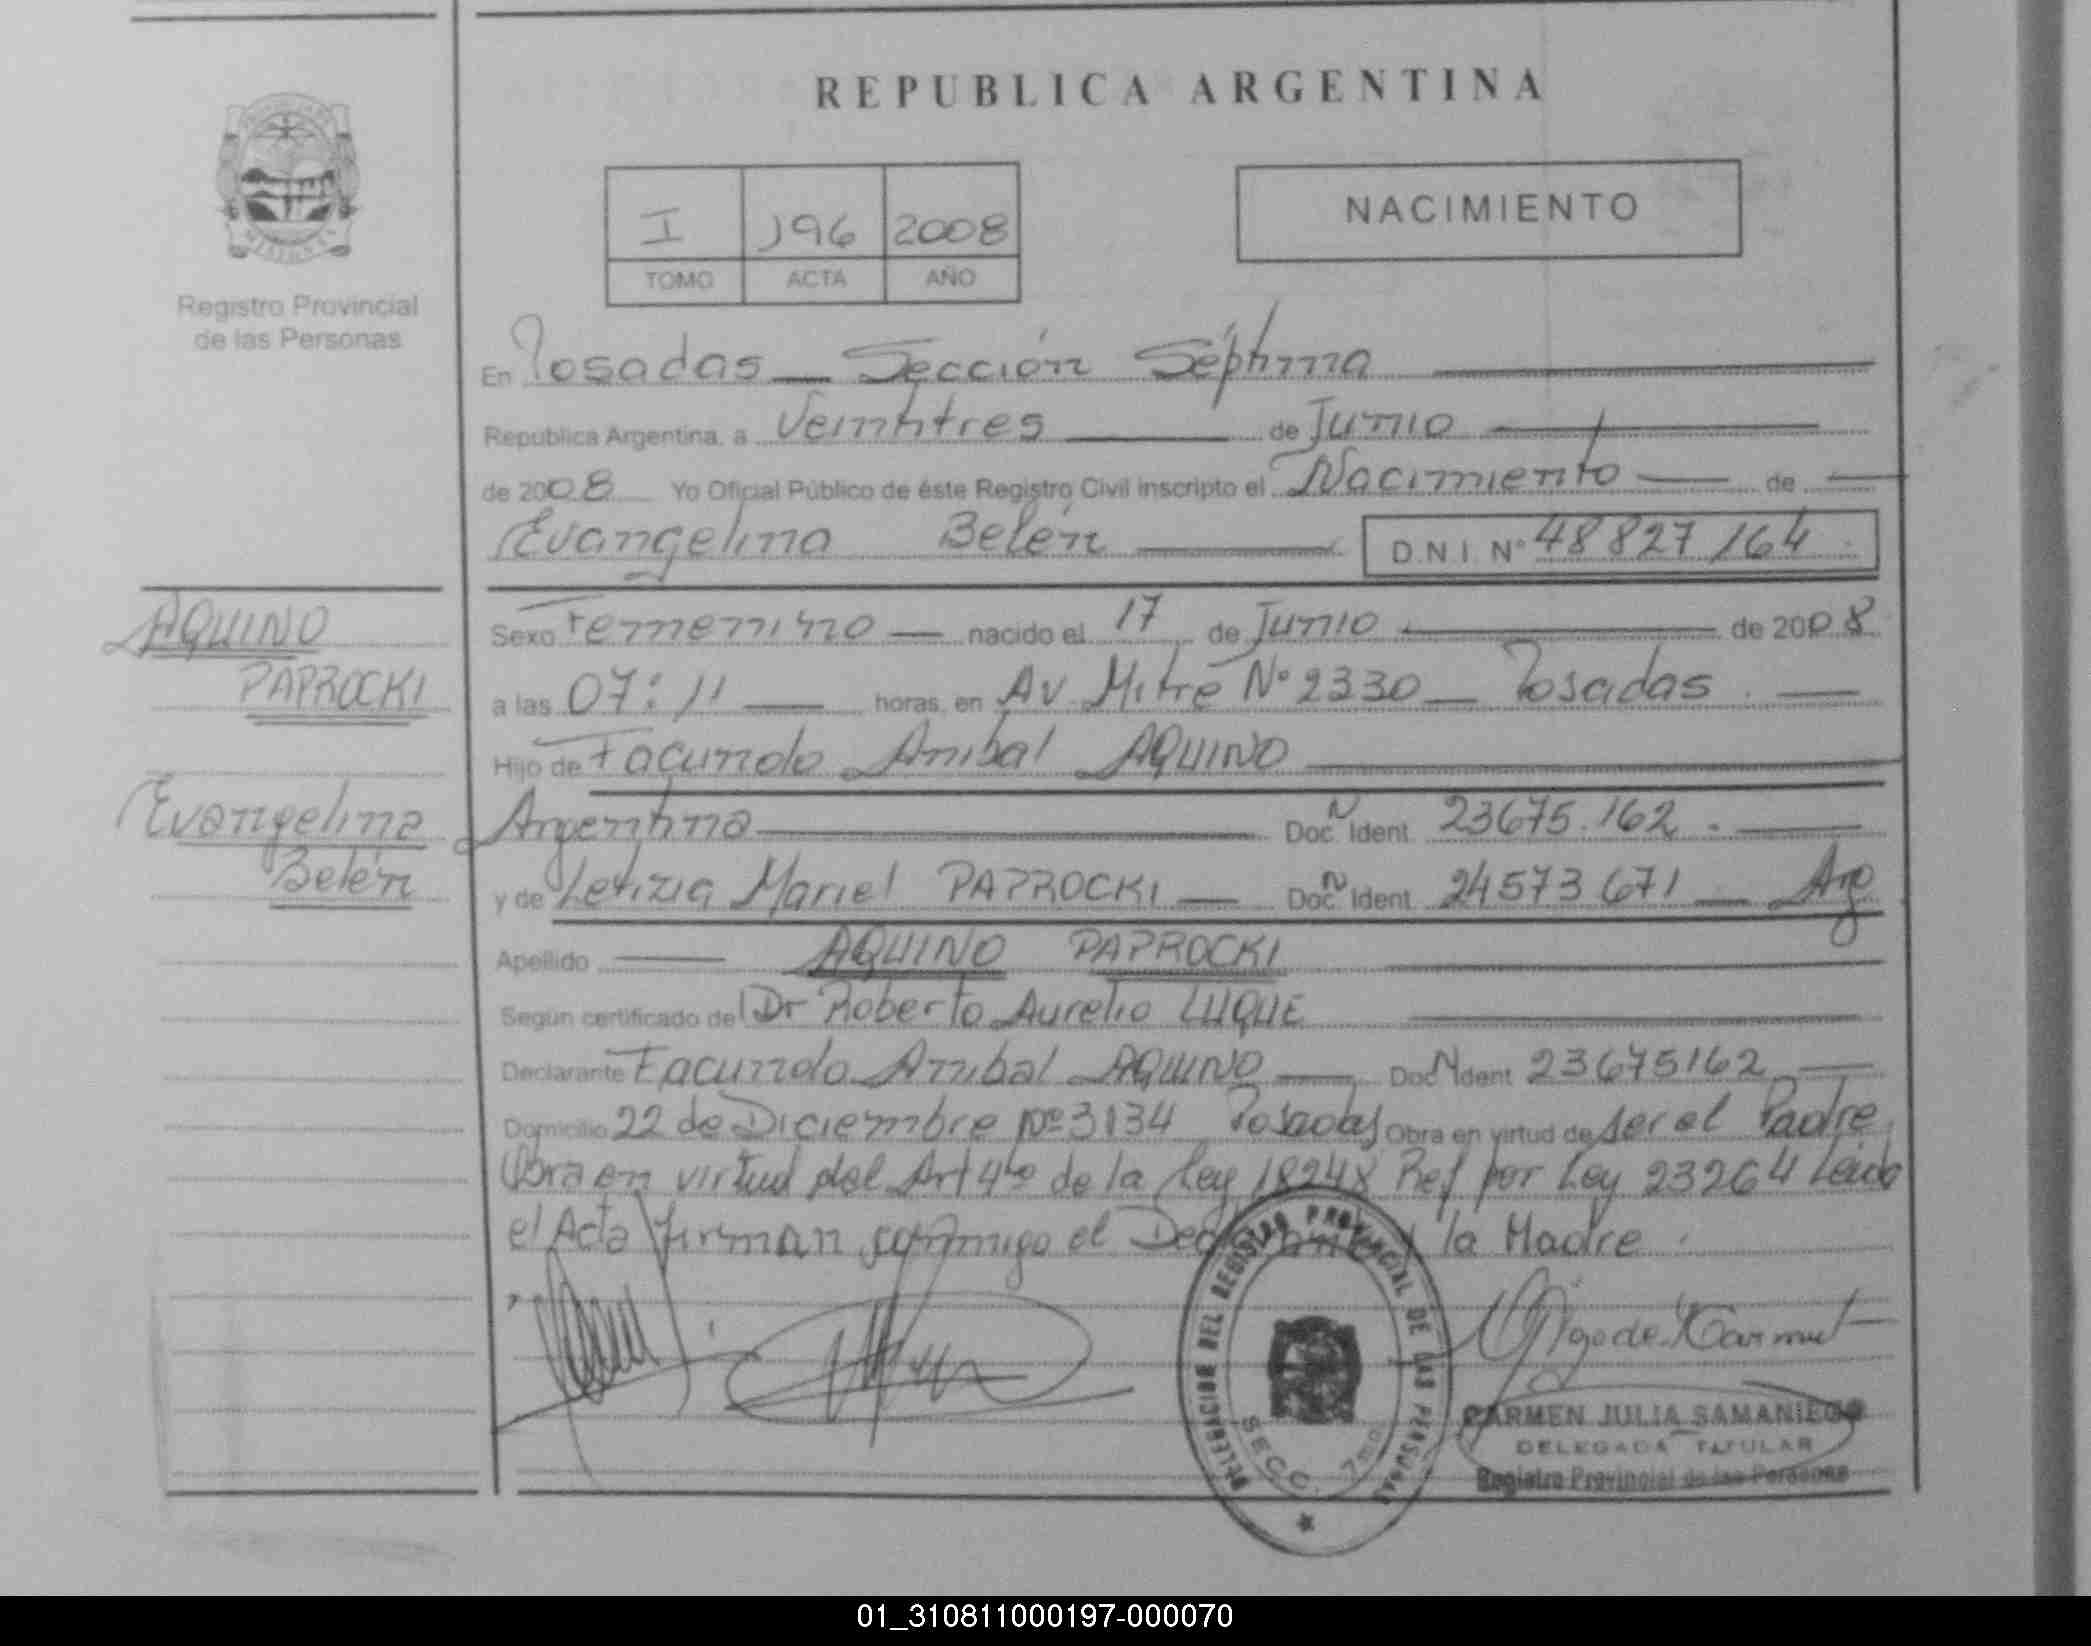 REPUBLICA ARGENTINA
I 196 2008
TOMO ACTA AÑO
NACIMIENTO
Registro Provincial
de las Personas
En Posadas — Sección Séptima
Republica Argentina, a Veintitres de Junio
de 2008 Yo Oficial Público de éste Registro Civil inscripto el Nacimiento — de —
Evangelina Belén — D.N.I. Nº 48827164
AQUINO
PAPROCKI
Evangelina
Belén
Sexo Femenino — nacido el 17 de Junio de 2008
a las 07:11 — horas, en Av Mitre Nº 2330 — Posadas
Hijo de Facundo Anibal AQUINO
Argentina Doc. N Ident 23675.162
y de Letizia Mariel PAPROCKI — Doc. N Ident 24573671 — Arg
Apellido — AQUINO PAPROCKI
Según certificado del Dr Roberto Aurelio LUQUE
Declarante Facundo Anibal AQUINO — Doc N Ident 23675162
Domicilio 22 de Diciembre Nº 3134 Posadas Obra en virtud de ser el Padre
Obra en virtud del Art 4to de la Ley 18248 Ref por Ley 23264 Leida
el Acta firman conmigo el Declarante y la Madre.
DELEGACION DEL REGISTRO PROVINCIAL DE LAS PERSONAS
SECC. 7ma
CARMEN JULIA SAMANIEGO
DELEGADA TITULAR
Registro Provincial de las Personas
01_310811000197-000070